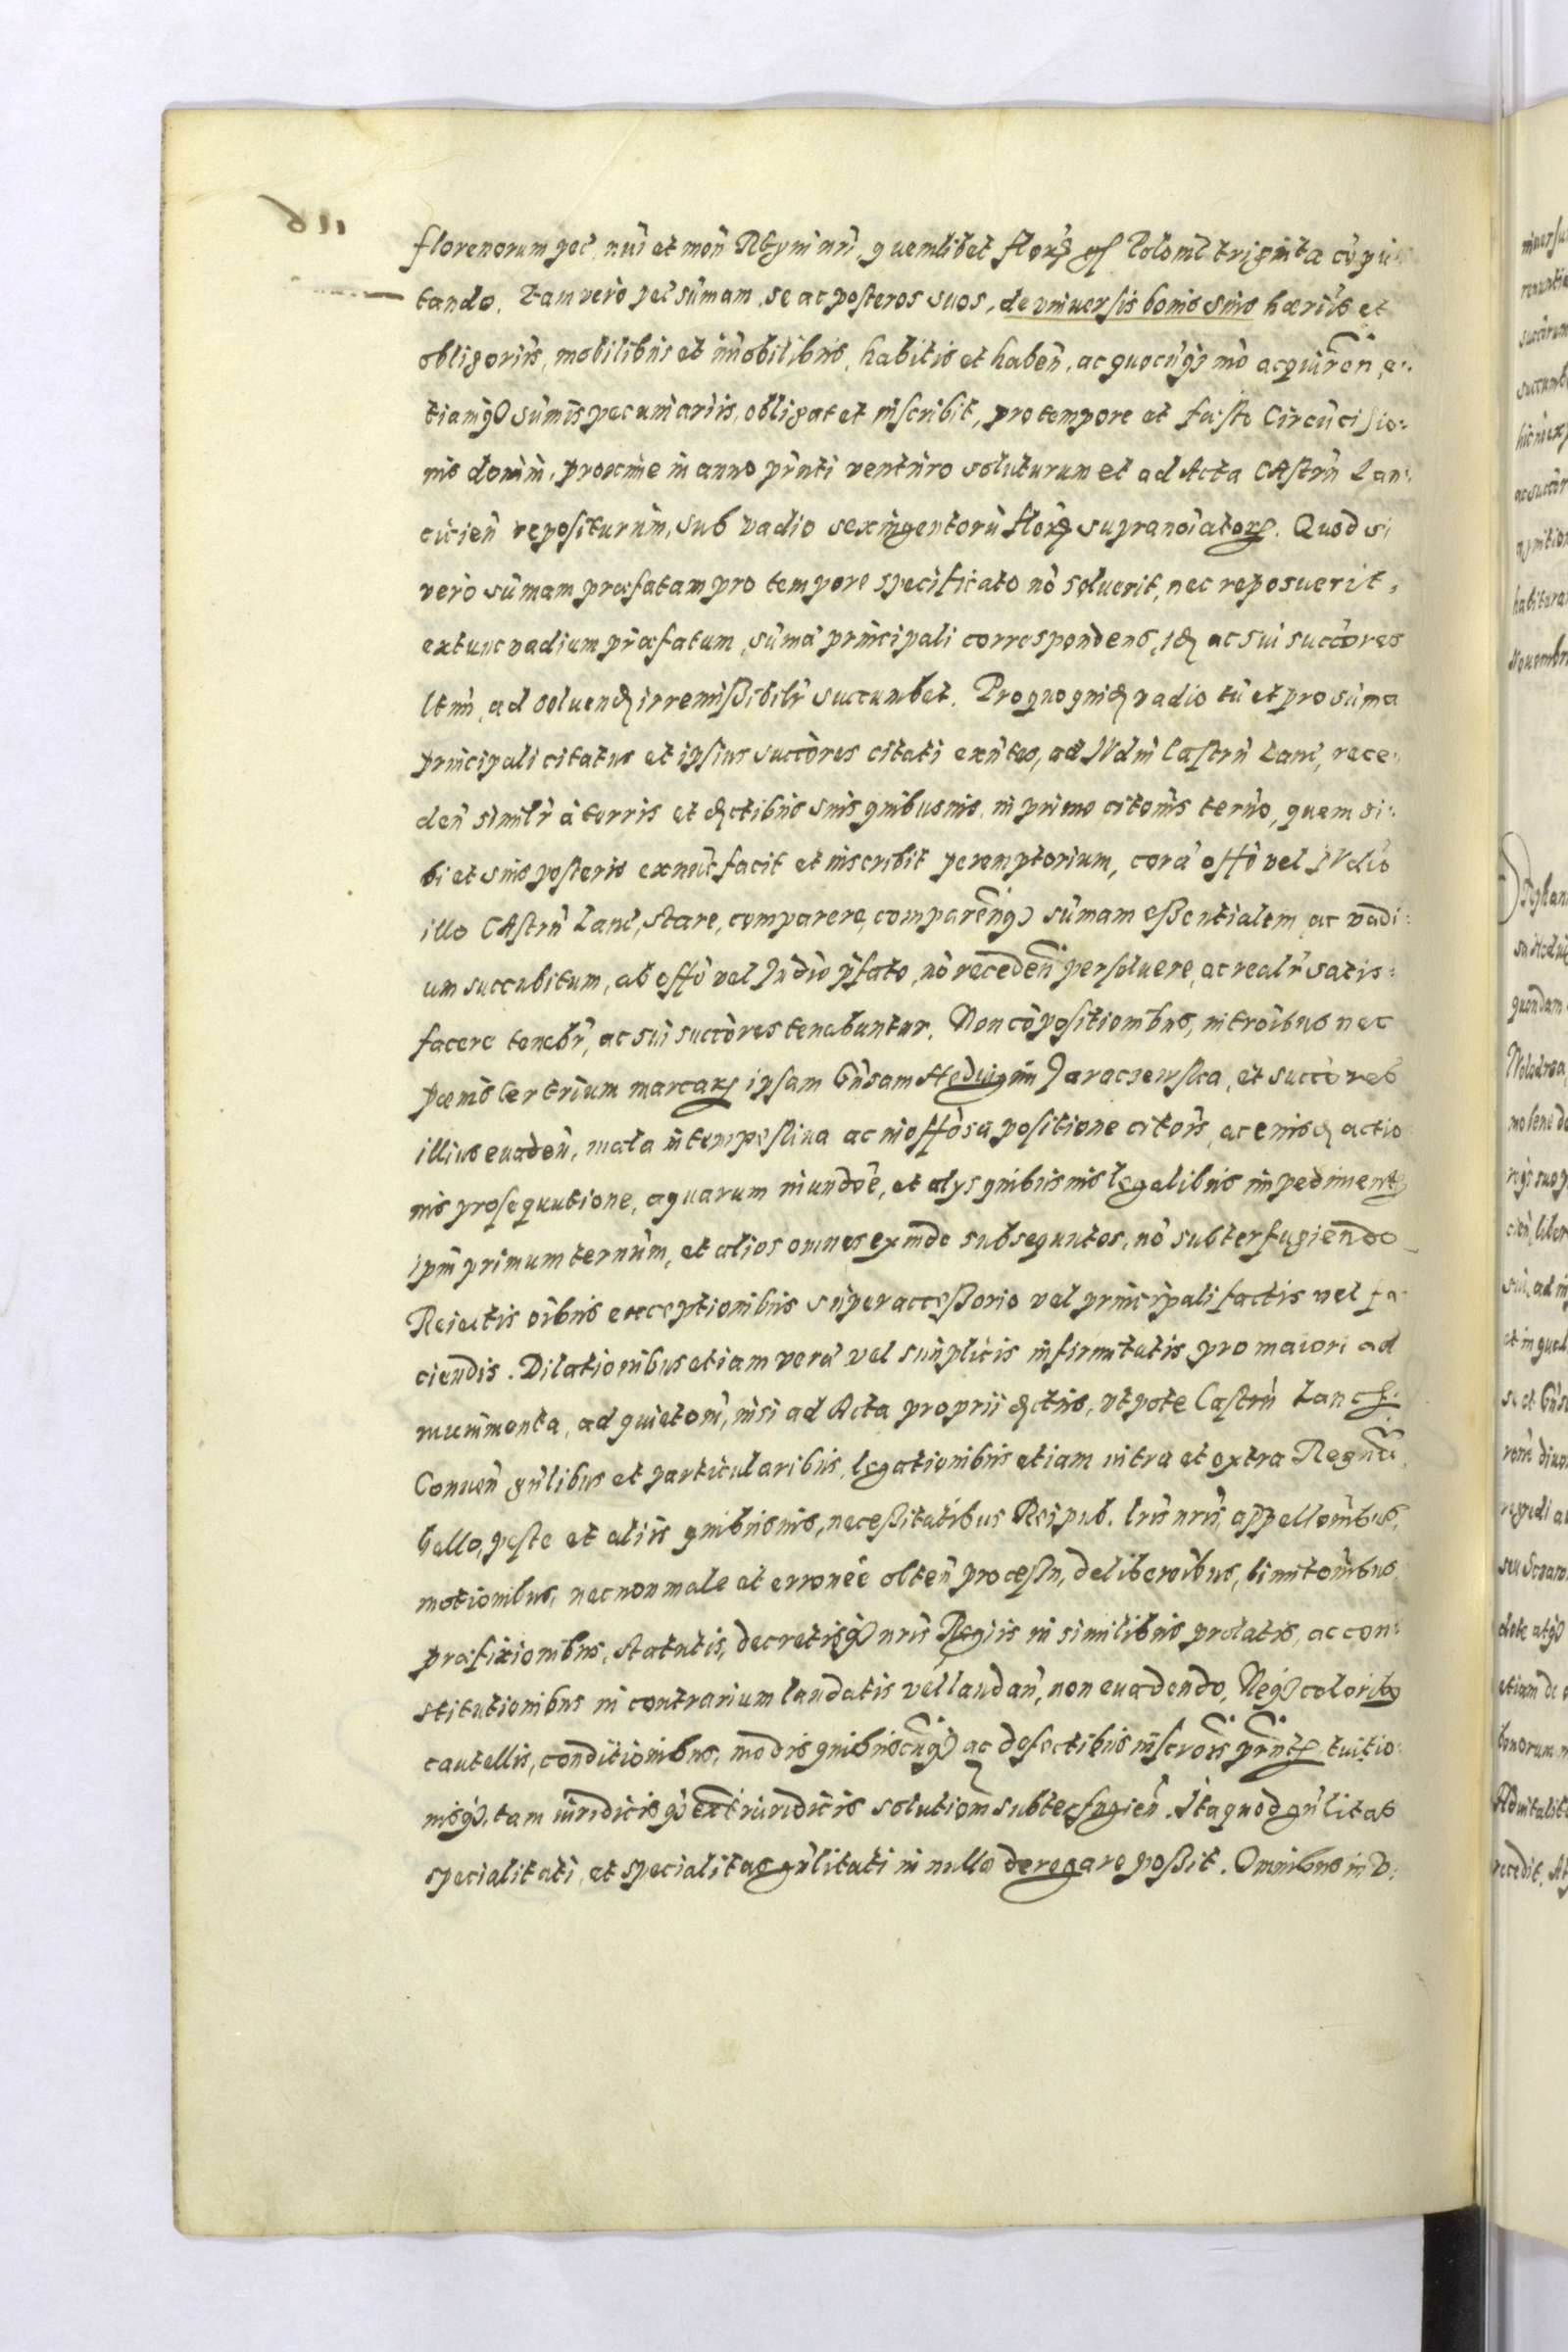 florenorum pec nui et mon Rgni nri, quemlibet flor gs Poloniĉ triginta cōpu
tando. Eam vero pec sūmam se ac posteros suos, de vniuersis bonis suis hæritis et
obligoriis, mobilibus et imobilibus, habitis et haben̄, ac quocūq; mō acquiren̄, e:
tiamq; sūmis pecuniariis, obligat et inscribit, pro tempore et festo Circūcisio:
nis domini, proxime in anno prnti venturo soluturum et ad Acta CAstrn̄ Lan:
cicien̄ repositurum, sub vadio sexingentorū florꝝ supranoīatorꝝ. Quod si
vero sūmam præfatam pro tempore specificato nō soluerit, nec reposuerit,
extunc vadium præfatum, sūmæ principali correspondens, id ac sui succōres
ltmi, ad soluend irremissibilr succumbet. Pro quoquid vadio tū et pro sūma
principali citatus et ipsius succōres citati exntes, ad IVdm̄ Castrn̄ Lanĉ, rece:
den̄ similr à terris et dctibus suis quibusuis, in primo citonis terno, quem si:
bi et suis posteris exnūc facit et inscribit peremptorium, corā offō vel IVdio
illo CAstrn̄ Lanĉ, stare, comparere, comparenq; sūmam essentialem, ac vadi:
um succubitum, ab offō vel Iudio pfato, nō receden̄ persoluere, ac realr satis:
facere tenebr, ac sui succōres tenebuntur. Non cōpositionibus, introībus nec
pœnis ter trium marcarꝝ ipsam Gnsam Heduigim Jaraczewska, et succōres
illius euaden̄, mala intempestiua ac inoffōsa positione citoīs, ac eiusd actio
nis prosequutione, aquarum inundōe, et alys quibusuis legalibus impedimentꝭ
ipm̄ primum ternum, et alios omnes exinde subsequntes, nō subterfugiendo
Reiectis oībus exceptionibus super accessorio vel principali factis vel fa
ciendis. Dilationibus etiam veræ vel simplicis infirmitatis, pro maiori ad
munimenta, ad quietom̄, nisi ad Acta proprii dctus, vtpote Castrn̄ Lancꝭ.
Conuen̄ gn̄libus et particularibus, legationibus etiam intra et extra Regnū.
bello, peste et aliis quibusuis, necessitatibus Reipub. lris nris, appellonibus,
motionibus, necnon male et erroneè obten̄ processu, deliberoībus, limitonibus
præfixionibus, statutis, decretisq; nris Regiis in similibus prolatis, ac con:
stitutionibus in contrarium laudatis vel laudan̄, non euadendo, Neq; coloribꝯ
cautellis, conditionibus, modis quibuscūq; ac defectibus inscrois prntꝭ, tuitio:
nisq;, tam iuridicis q; extriuridicis solutiom subterfugien̄. Ita quod gn̄litas
specialitati, et specialitas gn̄litati in nullo deregare possit. Omnibus in v: